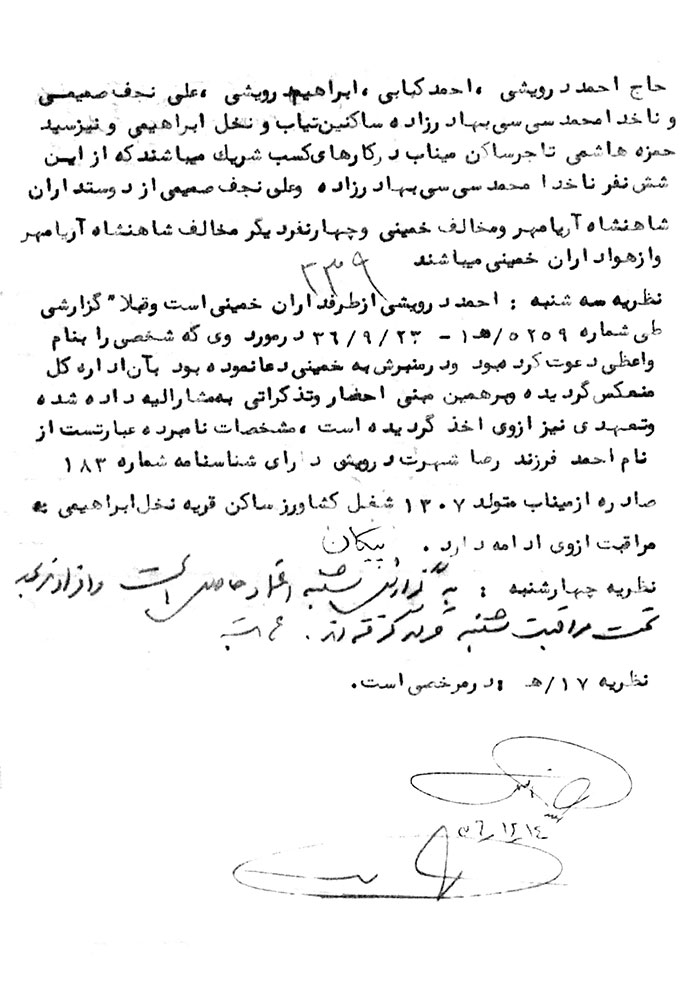 حاج احمد درویشی ،احمد کبابی ،ابراهیم درویشی ،علی نجف صمیمی
و ناخدا محمد سی سی بهادرزاده ساکنین تیاب و نخل ابراهیمی و نیز سید
حمزه هاشمی تاجر ساکن میناب در کارهای کسب شریك میباشند که از این
شش نفر ناخدا محمد سی سی بهادرزاده وعلی نجف صمیمی از دوستداران
شاهنشاه آریامهر ومخالف خمینی وچهارنفر دیگر مخالف شاهنشاه آریامهر
و ازهواداران خمینی میباشند
۳۳۹
نظریه سه شنبه : احمد درویشی ازطرفداران خمینی است وقبلا" گزارشی
طی شماره ۵۲۵۹/هـ۱ - ۳۶/۹/۲۳ در مورد وی که شخصی را بنام
واعظی دعوت کرده بود ودرمنبرش به خمینی دعا نموده بود بآن اداره کل
منعکس گردیده وبرهمین مبنی احضار وتذکراتی به مشارالیه داده شده
وتعهدی نیز ازوی اخذ گردیده است ،مشخصات نامبرده عبارتست از
نام احمد فرزند رضا شهرت درویشی دارای شناسنامه شماره ۱۸۳
صادره ازمیناب متولد ۱۳۰۷ شغل کشاورز ساکن قریه نخل ابراهیمی به
مراقبت ازوی ادامه دارد . پیکان
نظریه چهارشنبه : به گزارش شنبه اعتماد حاصل است و افراد
تحت مراقبت شنبه قرار گرفته اند .
نظریه ۱۷/هـ :درمرخصی است.
۳۶/۱۲/۱۴